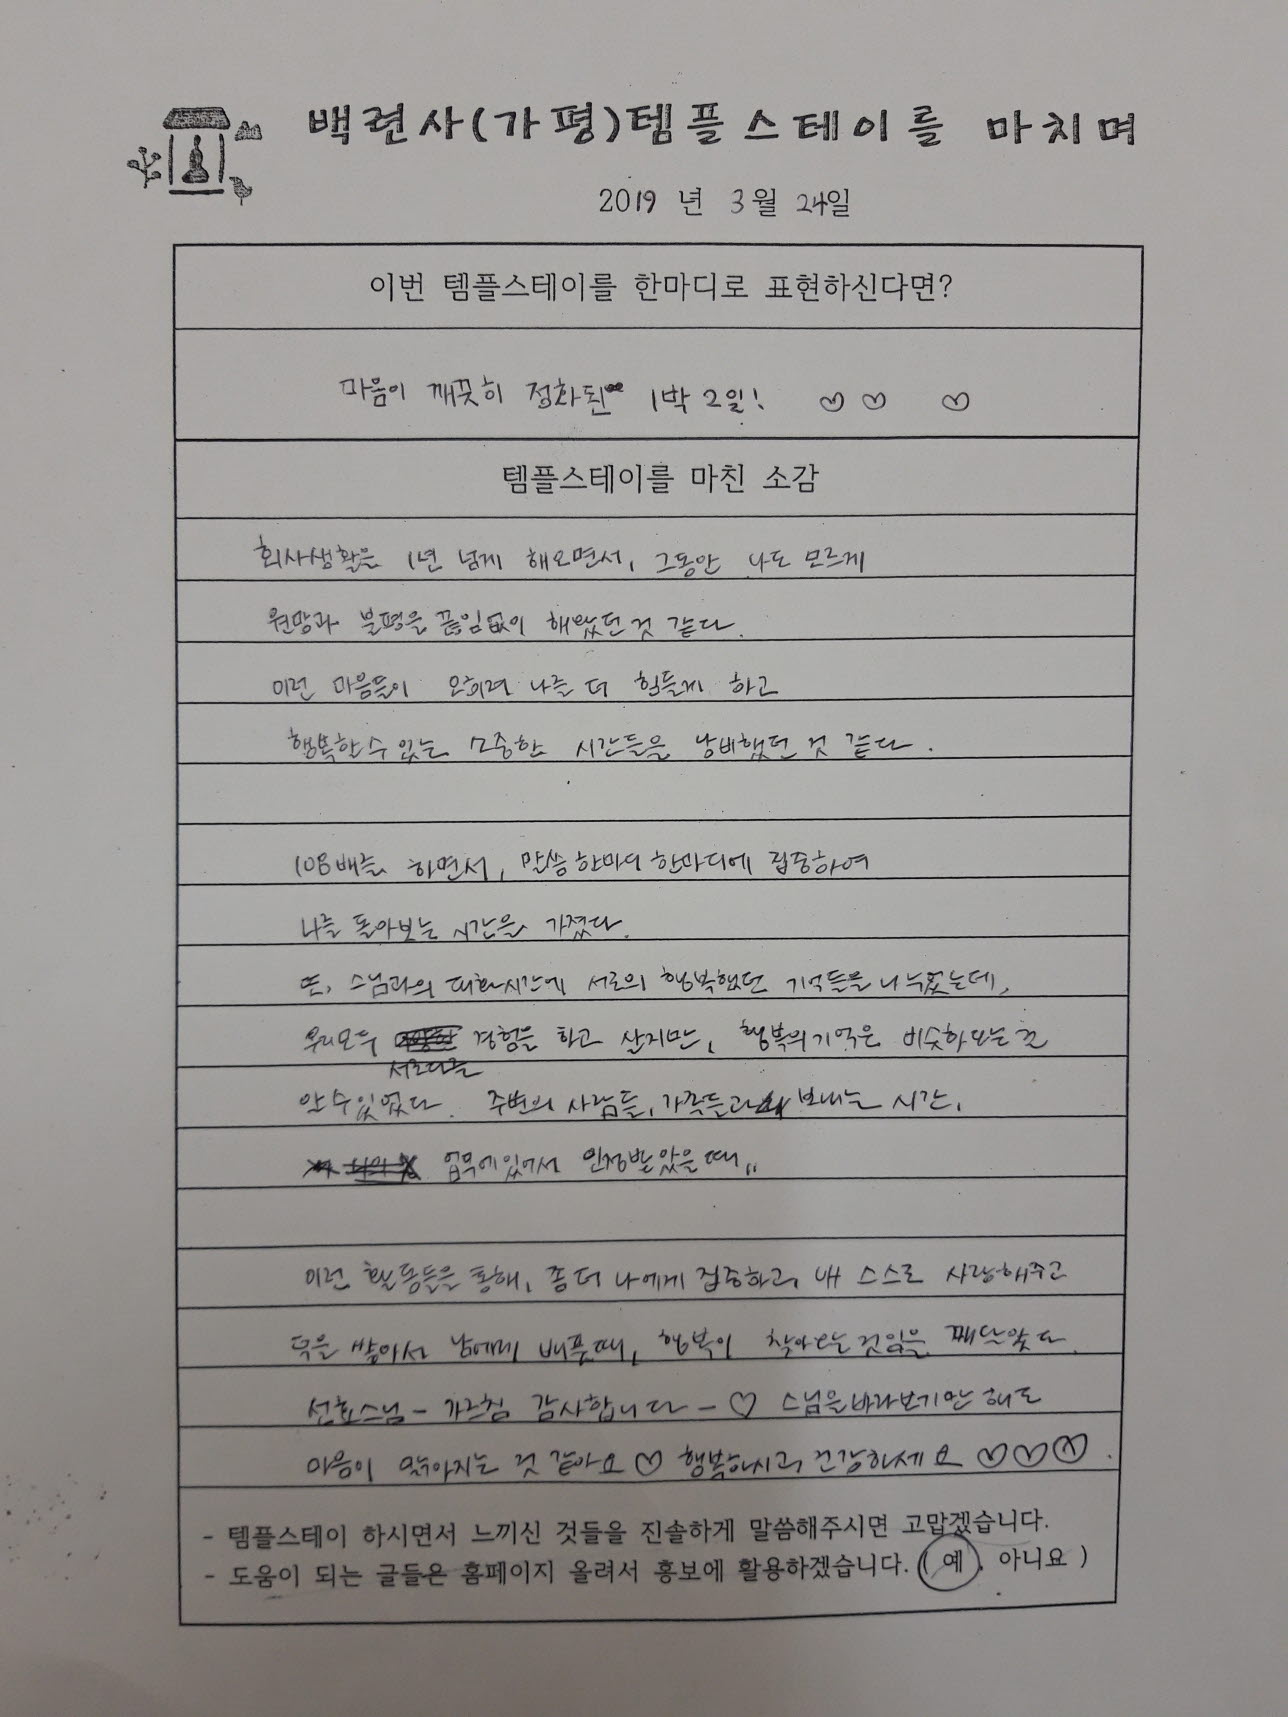 백련사(가평)템플스테이를 마치며
2019 년 3월 24일
이번 템플스테이를 한마디로 표현하신다면?
마음이 깨끗히 정화된 1박 2일! ♡ ♡ ♡
템플스테이를 마친 소감
회사생활을 1년 넘게 해오면서, 그동안 나도 모르게
원망과 불평을 끊임없이 해왔던 것 같다.
이런 마음들이 오히려 나를 더 힘들게 하고
행복할 수 있는 소중한 시간들을 낭비했던 것 같다.
108배를 하면서, 말씀 한마디 한마디에 집중하여
나를 돌아보는 시간을 가졌다.
또, 스님과의 대화시간에 서로의 행복했던 기억들을 나누었는데,
우리모두 서로다른 경험을 하고 살지만, 행복의 기억은 비슷하다는 걸
알 수 있었다. 주변의 사람들, 가족들과 보내는 시간,
업무에 있어서 인정받았을 때..
이런 활동들을 통해, 좀 더 나에게 집중하고, 내 스스로 사랑해주고
덕을 쌓아서 남에게 베풀 때, 행복이 찾아오는 것임을 깨달았다.
선효스님 - 가르침 감사합니다 - ♡ 스님을 바라보기만 해도
마음이 맑아지는 것 같아요 ♡ 행복하시고, 건강하세요 ♡♡♡.
- 템플스테이 하시면서 느끼신 것들을 진솔하게 말씀해주시면 고맙겠습니다.
- 도움이 되는 글들은 홈페이지 올려서 홍보에 활용하겠습니다. ( 예 , 아니요 )